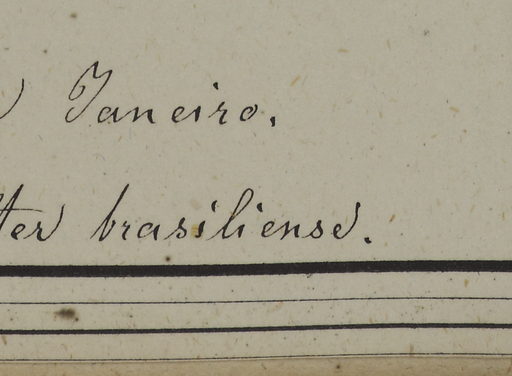 Janeiro.
ter brasiliense.